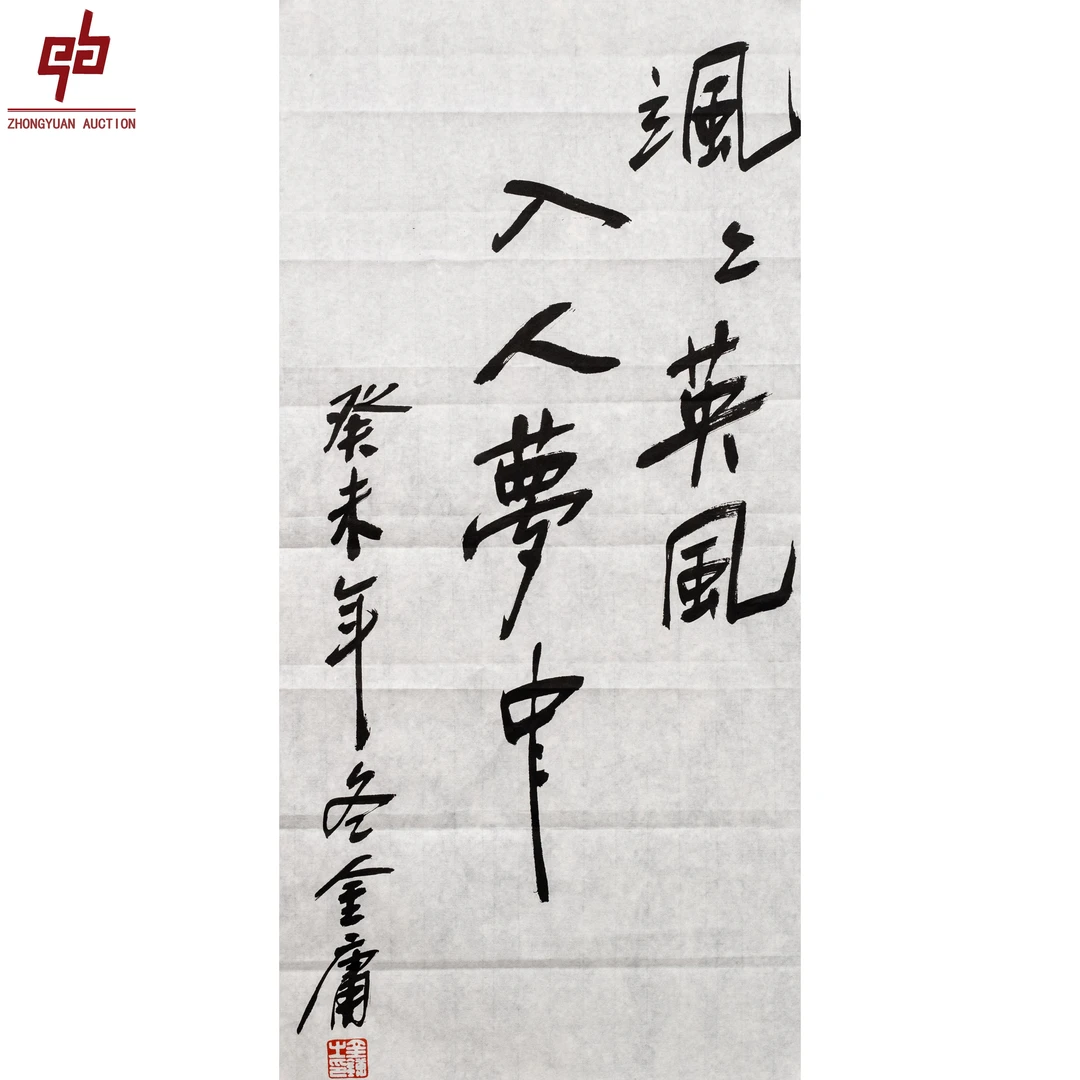 ZHONGYUAN AUCTION
颯々英風
入人夢中
癸未年冬金庸